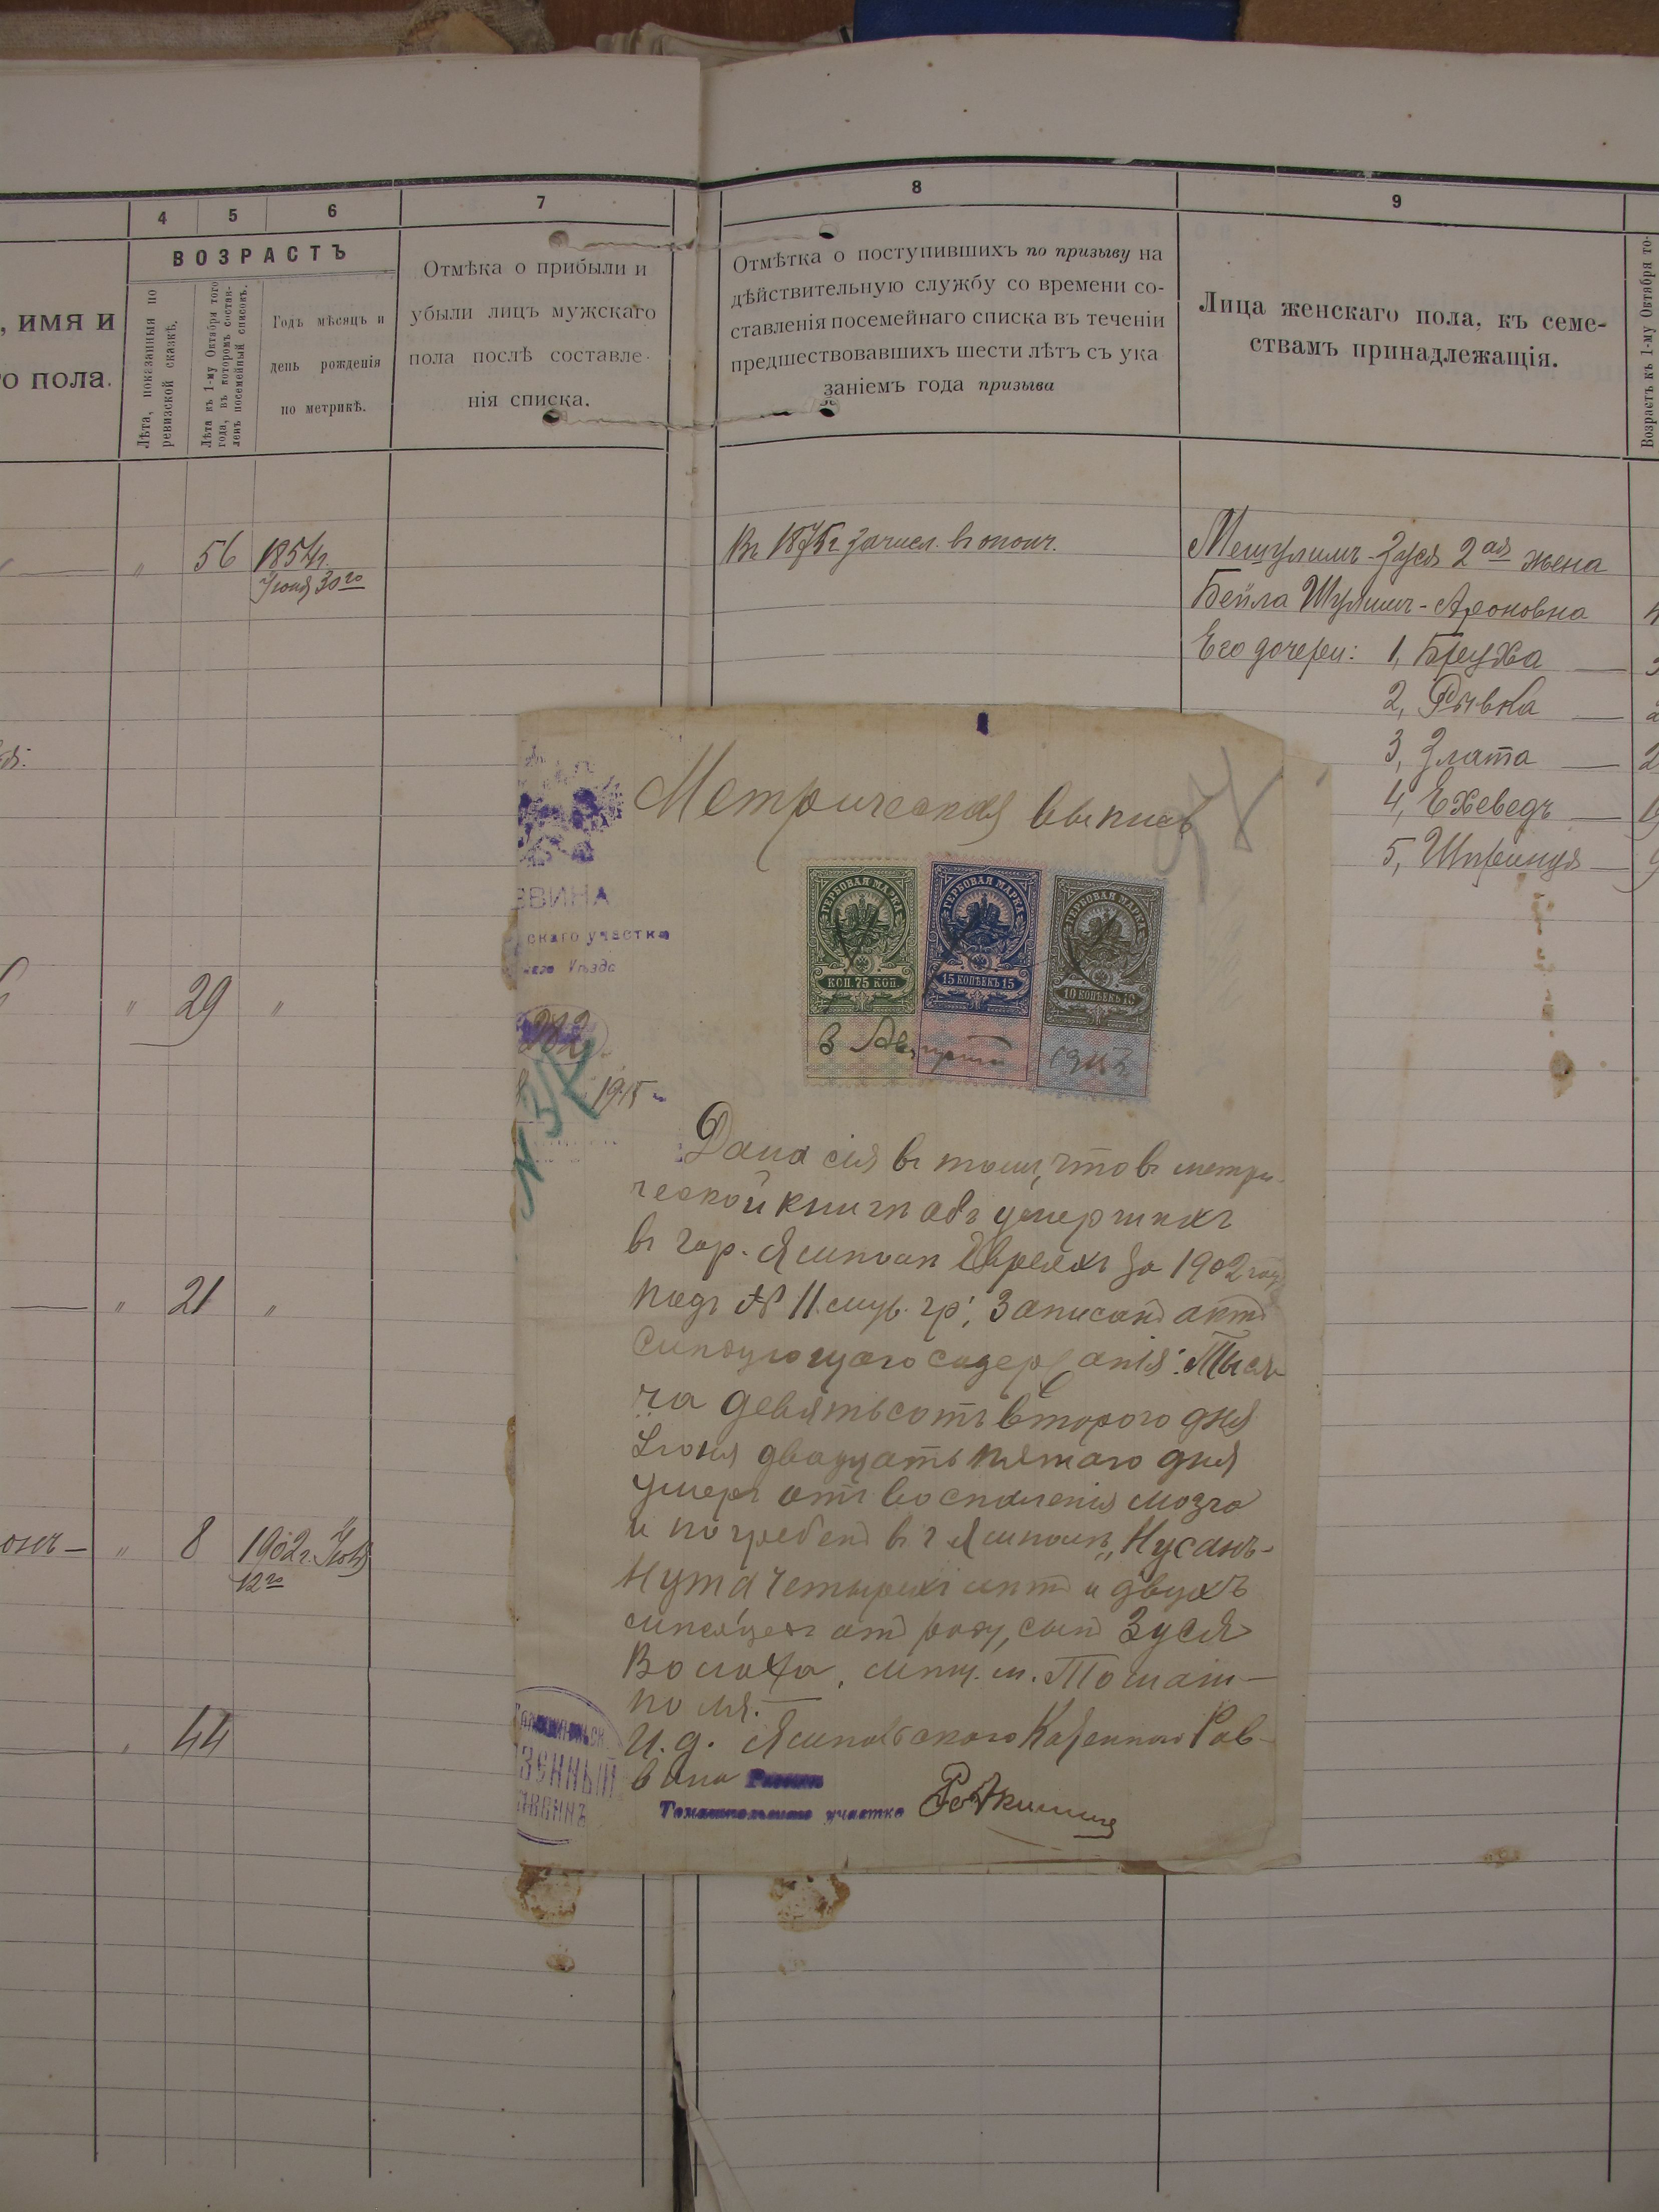 4
5
6
7
8
9
ВОЗРАСТЪ
, имя и
го пола.
Лѣта, показанныя по
ревизской сказкѣ.
Лѣта къ 1-му Октября того
года, въ которомъ состав-
ленъ посемейный списокъ.
Годъ мѣсяцъ и
день рожденія
по метрикѣ.
Отмѣка о прибыли и
убыли лицъ мужскаго
пола послѣ составле-
нія списка.
Отмѣтка о поступившихъ по призыву на
дѣйствительную службу со времени со-
ставленія посемейнаго списка въ теченіи
предшествовавшихъ шести лѣтъ съ ука
заніемъ года призыва
Лица женскаго пола, къ семе-
ствамъ принадлежащія.
Возрастъ къ 1-му Октября то-
" 56 1854г.
Іюня 30го
Въ 1875г зачисл. въ ополч.
Мешулимъ-Зуся 2ая жена
Бейла Шулимъ-Ароновна
Его дочери: 1, Бруха —
2, Рывка —
3, Злата —
4, Ехеведъ —
5, Шпринця —
" 29 "
— " 21 "
" 8 1902г. Іюля
12го
— " 44
Метрическая выпись
ВВИНА
скаго участка
Уѣзда
282
1915
ГЕРБОВАЯ МАРКА
КОП. 75 КОП.
ГЕРБОВАЯ МАРКА
15 КОПѢЕКЪ 15
ГЕРБОВАЯ МАРКА
10 КОПѢЕКЪ 10
3 Августа 1915
Дана сія въ томъ, что въ метри-
ческой книгѣ объ умершихъ
въ гор. Ямполѣ Евреяхъ за 1902 годъ
подъ № 11 муж. гр; Записанъ актъ
слѣдующаго содержанія: Тыся-
ча девятьсотъ второго дня
Іюня двадцать пятаго дня
умеръ отъ воспаленія мозга
и погребенъ въ г Ямполѣ „Нусанъ-
Нута четырехъ лѣтъ и двухъ
мѣсяцевъ отъ роду, сынъ Зуся
Волоха, мѣщ. м. Томаш-
поля.—
И. д. Ямпольскаго Казеннаго Рав-
вина
Томашпольскаго участка
ЗЕННЫЙ
РАВВИНЪ